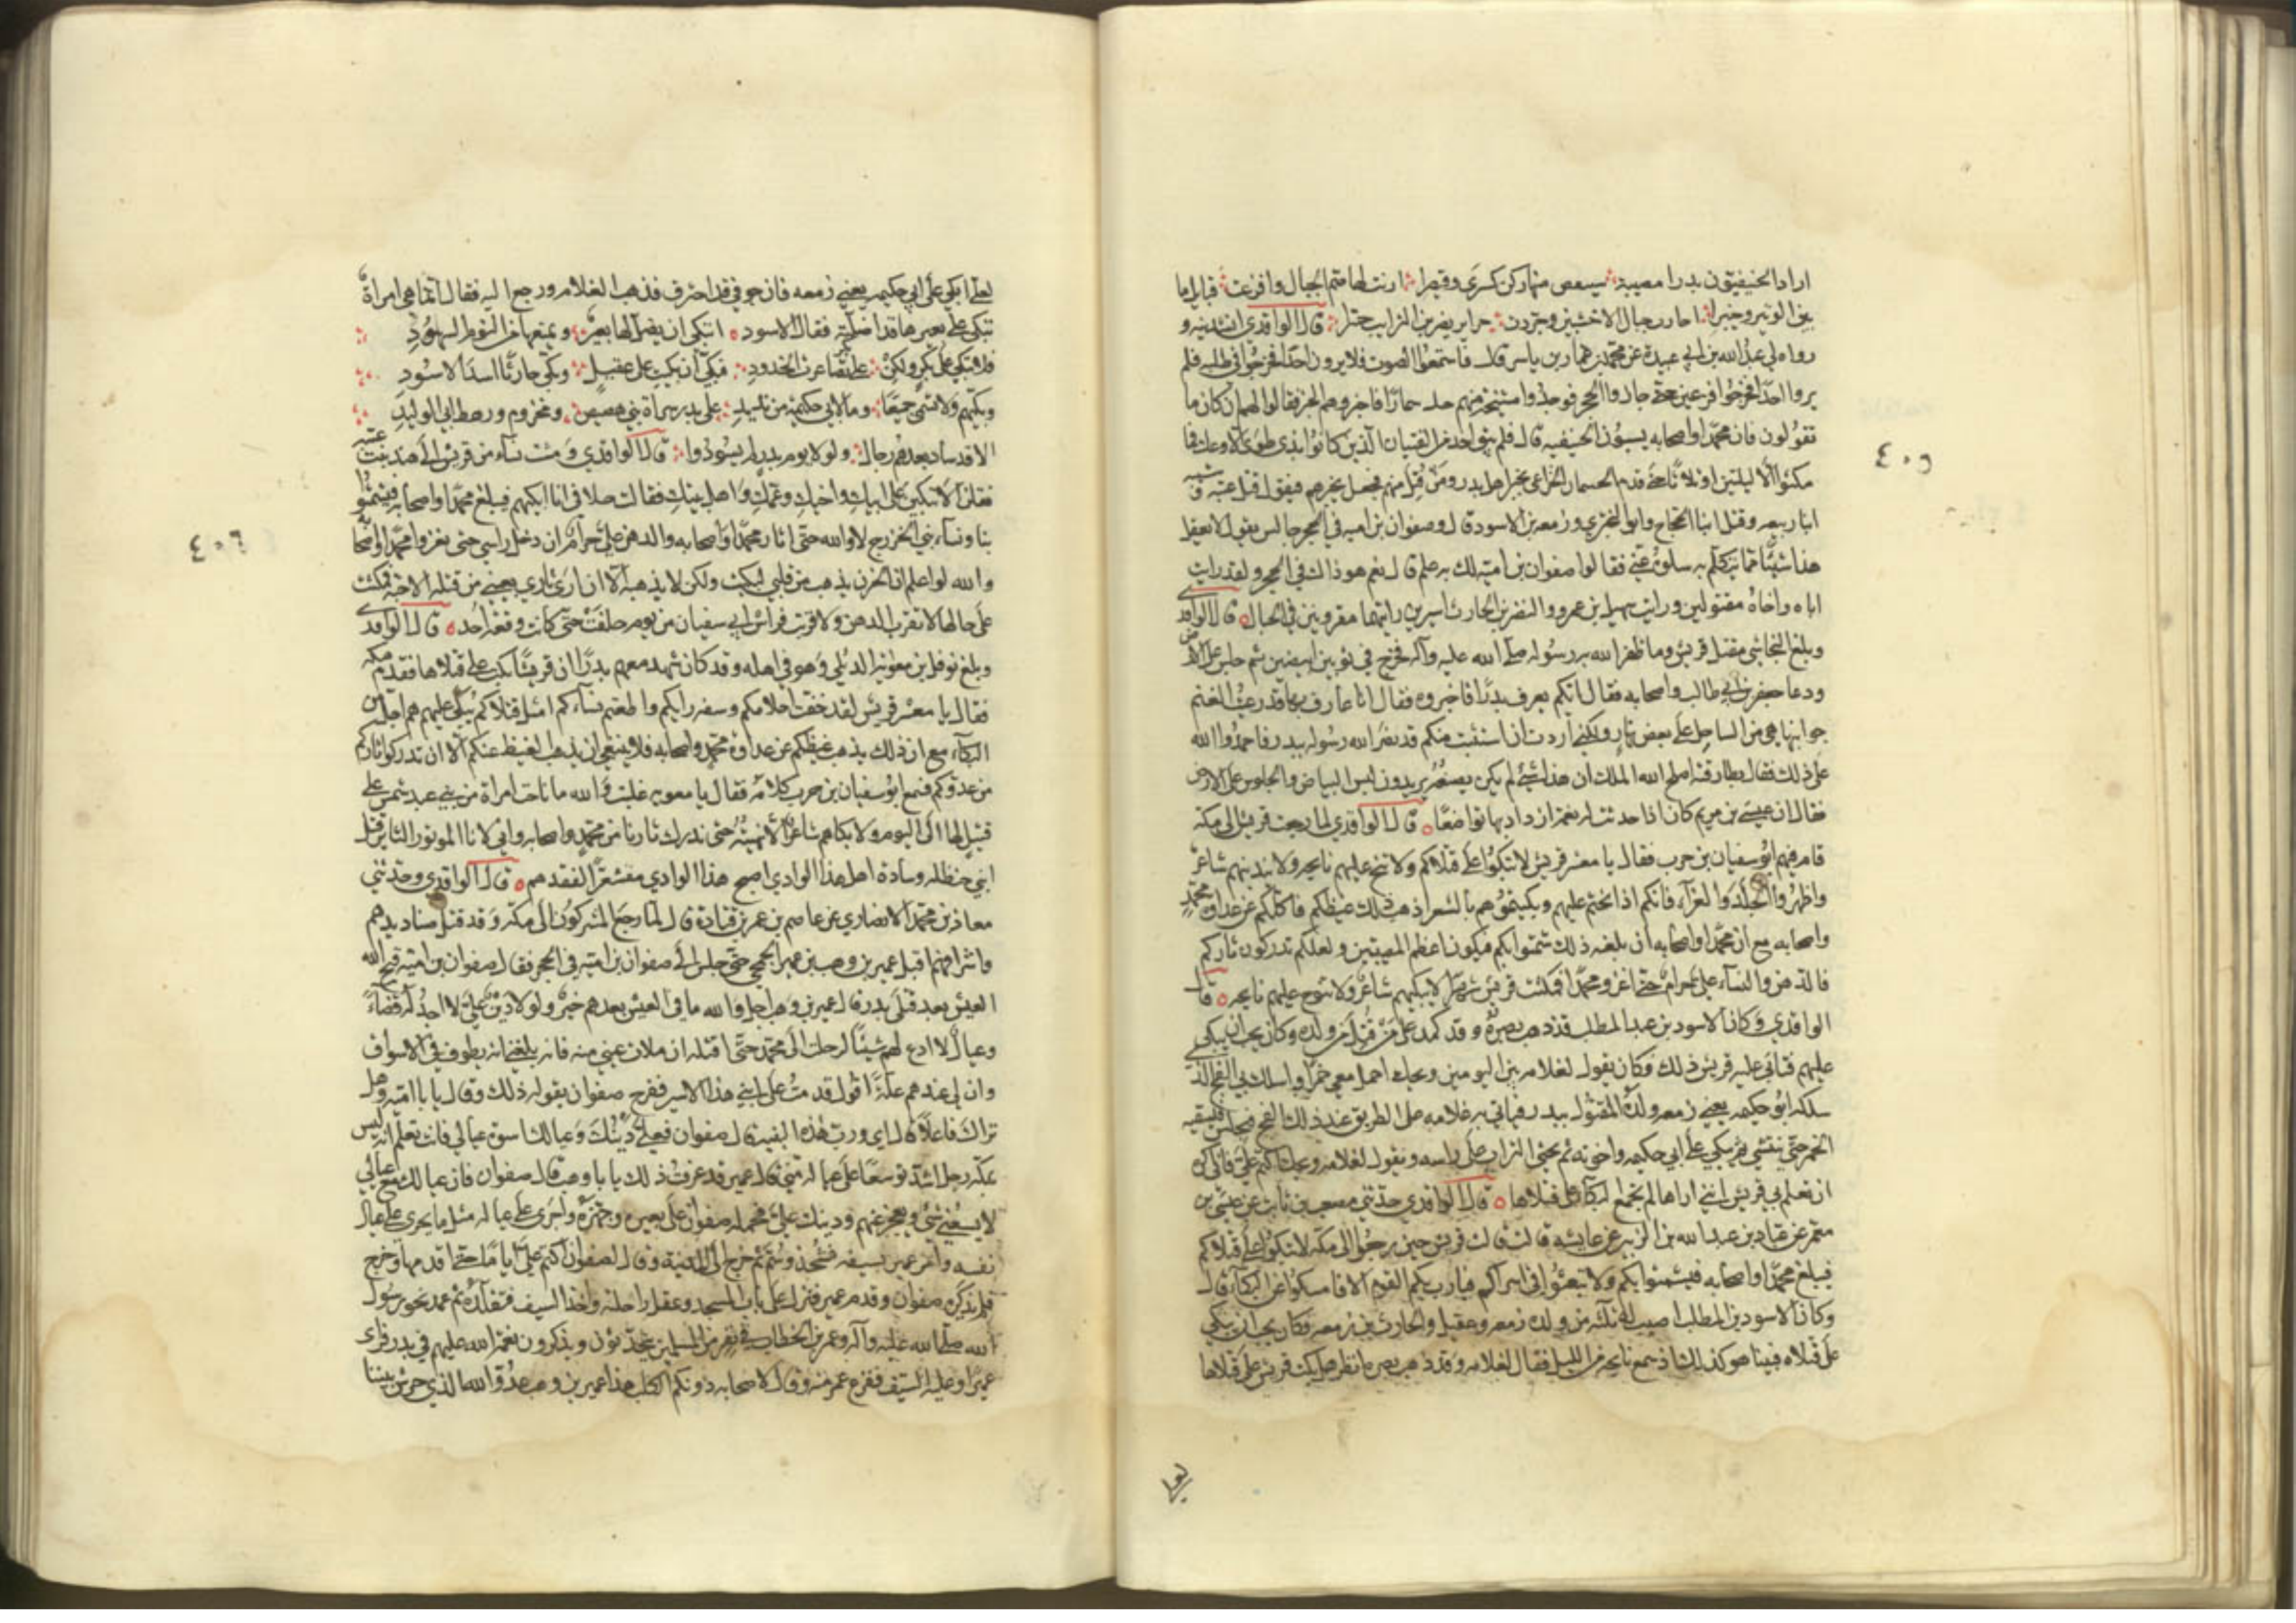 ارادا الحنيفيون بدرا مصيبة سينقض منها ركن كسرى وقيصرا ارنت لها صم الجبال وافزعت قبايل ما
بين الوتير وخيبرا اجازت جبال الاخشبين وجردت حراير يضربن الترايب حسرا قال الواقدي انشدنيه و
رواه لي عبد الله بن ابي عبيدة عن محمد بن عمار بن ياسر قال فاستمعوا الصوت فلا يرون احدا فخرجوا في طلبه فلم
يروا احدا فخرجوا فزعين حتى جازوا الحجر فوجدوا مشيخة منهم جلة سمارا فاخبروهم الخبر فقالوا لهم ان كان ما
تقولون فان محمدا واصحابه يسمون الحنيفيه قال فلم يبق احد من الفتيان الذين كانوا بذي طوى الا وعك فما
مكثوا الا ليلتين او ثلاثا حتى قدم الحيسمان الخزاعي بخبر اهل بدر ومن قتل منهم فجعل يخبرهم فيقول قتل عتبه و شيبه
ابنا ربيعه وقتل ابنا الحجاج وابو البختري وزمعه بن الاسود قال وصفوان بن اميه في الحجر جالس يقول لا يعقل
هذا شيئا مما يتكلم به سلوه عني فقالوا صفوان بن اميه لك به علم قال نعم هو ذاك في الحجر ولقد رايت
اباه واخاه مقتولين ورايت سهيل بن عمرو والنضر بن الحارث اسيرين رايتهما مقرونين في الحبال قال الواقدي
وبلغ النجاشي مقتل قريش وما ظفر الله به رسوله صلى الله عليه وآله فخرج في ثوبين ابيضين ثم جلس على الارض
ودعا جعفر بن ابي طالب واصحابه فقال ايكم يعرف بدرا فاخبروه فقال انا عارف بها قد رعيت الغنم
جوانبها هي من الساحل على بعض نهار ولكني اردت ان استثبت منكم قد نصر الله رسوله ببدر فاحمدوا الله
على ذلك فقال بطارقته اصلح الله الملك ان هذا شئ لم يكن تصنعه يريدون لبس البياض والجلوس على الارض
فقال ان عيسى بن مريم كان اذا حدثت له نعمة ازداد بها تواضعا قال الواقدي لما رجعت قريش الى مكة
قام فيهم ابو سفيان بن حرب فقال يا معشر قريش لا تبكوا على قتلاكم ولا تنح عليهم نايحه ولا يندبهم شاعر
واظهروا الجلد والعزآء فانكم اذا نحتم عليهم وبكيتموهم بالشعر اذهب ذلك غيظكم فاكلكم عن عداوة محمد
واصحابه مع ان محمدا واصحابه ان بلغه ذلك شمتوا بكم فيكون اعظم المصيبتين ولعلكم تدركون ثاركم
فالدهن والنساء علي حرام حتى اغزو محمدا فمكثت قريش شهرا لا يبكيهم شاعر ولا تنوح عليهم نايحه قال
الواقدي وكان الاسود بن عبد المطلب قد ذهب بصره وقد كمد على من قتل من ولده وكان يحب ان يبكي
عليهم فتابى عليه قريش ذلك فكان يقول لغلامه بين اليومين ويحك احمل معي خمرا واسلك بي الفج الذي
سلكه ابو حكيمه يعني زمعه ولده المقتول ببدر فياتي به غلامه على الطريق عند ذلك الفج فيجلس فيسقيه
الخمر حتى ينتشي ثم يبكي على ابي حكيمه واخوته ثم يحثي التراب على راسه ويقول لغلامه ويحك اكتم علي فاني اكره
ان تعلم بي قريش اني اراها لم تجمع البكآء على قتلاها قال الواقدي حدثني مصعب بن ثابت عن عيسى بن
معمر عن عباد بن عبد الله بن الزبير عن عايشه قالت قالت قريش حين رجعوا الى مكه لا تبكوا على قتلاكم
فيبلغ محمدا واصحابه فيشمتوا بكم ولا تبعثوا في اسراكم فيارب بكم القوم الا فامسكوا عن البكآء قال
وكان الاسود بن المطلب اصيب له ثلثة من ولده زمعه وعقيل والحارث بن زمعه فكان يحب ان يبكي
على قتلاه فبينا هو كذلك اذ سمع نايحه من الليل فقال لغلامه وقد ذهب بصره انظر هل بكت قريش على قتلاها
٤٠٥
لعلي ابكي على ابي حكيمه يعني زمعه فان جوفي قد احترق فذهب الغلام ورجع اليه فقال انما هي امراة
تبكي على بعيرها قد اضلته فقال الاسود اتبكي ان يضل لها بعير ويمنعها من النوم السهود
فلا تبكي على بكر ولكن على بدر تصاغرت الخدود فبكي ان بكيت على عقيل وبكي حارثا اسد الاسود
وبكيهم ولا تسمي جميعا وما لابي حكيمة من نديد على بدر سراة بني هصيص ومخزوم ورهط ابي الوليد
الا قد ساد بعدهم رجال ولولا يوم بدر لم يسودوا قال الواقدي ومشت نسآء من قريش الى هند بنت عتبه
فقلن الا تبكين على ابيك واخيك وعمك واهل بيتك فقالت حلا في انا ابكيهم فيبلغ محمدا واصحابه فيشمتوا
بنا ونسآء بني الخزرج لا والله حتى اثار محمدا واصحابه والدهن علي حرام ان دخل راسي حتى نغزوا محمدا واصحابه
والله لو اعلم ان الحزن يذهب من قلبي لبكيت ولكن لا يذهبه الا ان ارى ثاري بعيني من قتله الاحبه فمكثت
على حالها لا تقرب الدهن ولا قربت فراش ابي سفيان من يوم حلفت حتى كانت وقعة احد قال الواقدي
وبلغ نوفل بن معويه الديلي وهو في اهله وقد كان شهد معهم بدرا ان قريشا بكت على قتلاها فقدم مكه
فقال يا معشر قريش لقد خفت احلامكم وسفه رايكم واطعتم نسآءكم امثل قتلاكم يبكى عليهم هم اجل من
البكآء مع ان ذلك يذهب غيظكم عن عداوة محمد واصحابه فلا ينبغي ان يذهب الغيظ عنكم الا ان تدركوا ثاركم
من عدوكم فسمع ابو سفيان بن حرب كلامه فقال يا معويه غلبت والله ما ناحت امراة من بني عبد شمس على
قتيل لها الى اليوم ولا بكاهم شاعر الا نهيته حتى ندرك ثارنا من محمد واصحابه واني لانا الموتور الثاير قتل
ابني حنظله وسادة اهل هذا الوادي اصبح هذا الوادي مقشعرا لفقدهم قال الواقدي وحدثني
معاذ بن محمد الانصاري عن عاصم بن عمر بن قتادة قال لما رجع المشركون الى مكه وقد قتل صناديدهم
واشرافهم اقبل عمير بن وهب بن عمير الجمحي حتى جلس الى صفوان بن اميه في الحجر فقال صفوان بن اميه قبح الله
العيش بعد قتلى بدر قال عمير بن وهب اجل والله ما في العيش بعدهم خير ولولا دين علي لا اجد له قضآء
وعيال لا ادع لهم شيئا لرحلت الى محمد حتى اقتله ان ملات عيني منه فانه بلغني انه يطوف في الاسواف
وان لي عندهم علة اقول قدمت على ابني هذا الاسير ففرح صفوان بقوله ذلك وقال يا با اميه وهل
نراك فاعلا قال اي ورب هذه البنيه قال صفوان فعلي دينك وعيالك اسوة عيالي فانت تعلم انه ليس
بمكه رجل اشد توسعا على عياله مني قال عمير قد عرفت ذلك يا با وهب قال صفوان فان عيالك مع عيالي
لا يسعني شئ ويعجز عنهم ودينك علي فحمله صفوان على بعيره وجهزه واجرى على عياله مثل ما يجري على عيال
نفسه وامر عمير بسيفه فشحذ وسم ثم خرج الى المدينة وقال لصفوان اكتم علي اياما حتى اقدمها وخرج
فلم يذكره صفوان وقدم عمير فنزل على باب المسجد وعقل راحلته واخذ السيف فتقلده ثم عمد نحو رسول
الله صلى الله عليه وآله وعمر بن الخطاب في نفر من المسلمين يتحدثون ويذكرون نعمة الله عليهم في بدر فراى
عميرا وعليه السيف ففزع عمر منه وقال لاصحابه دونكم الكلب هذا عمير بن وهب عدو الله الذي حرش بيننا
٤٠٦